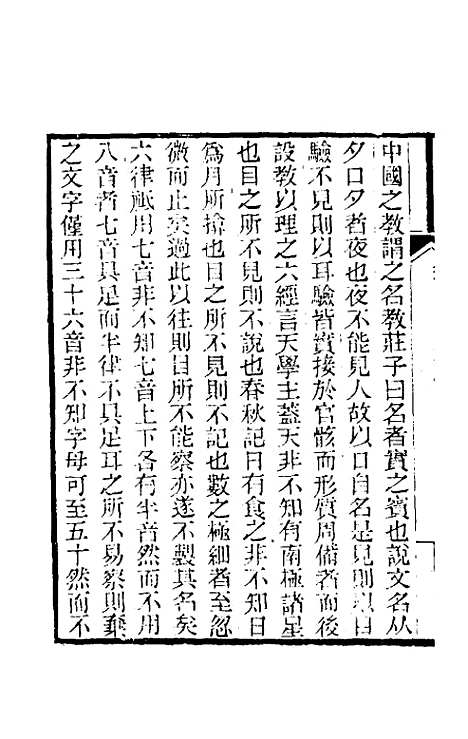 中國之教謂之名教莊子曰名者實之賓也說文名从
夕口夕者夜也夜不能見人故以口自名是見則以目
驗不見則以耳驗皆實接於官骸而形質周備者而後
設教以理之六經言天學主蓋天非不知有南極諸星
也目之所不見則不說也春秋記日有食之非不知日
爲月所揜也目之所不見則不記也數之極細者至忽
微而止矣過此以往則目所不能察亦遂不製其名矣
六律祗用七音非不知七音上下各有半音然而不用
八音者七音具足而半律不具足耳之所不易察則棄
之文字僅用三十六音非不知字母可至五十然而不